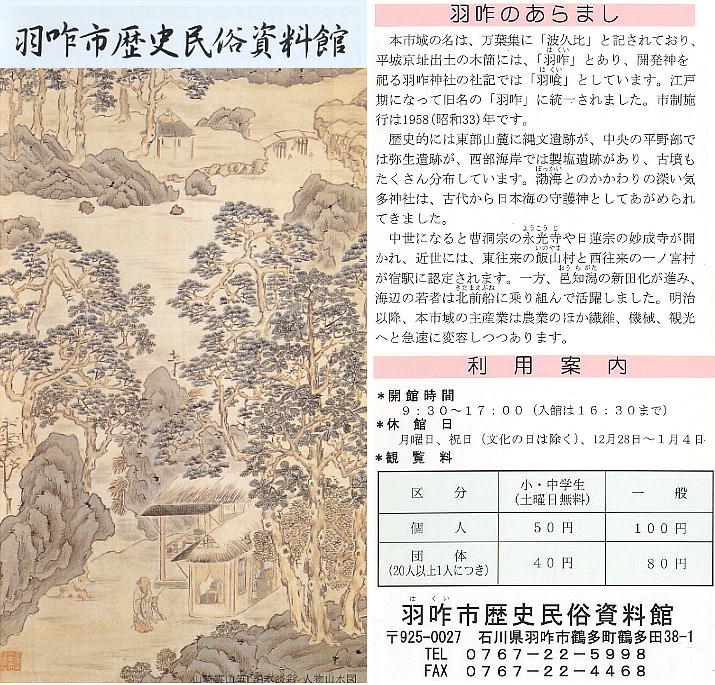 羽咋市歴史民俗資料館
羽咋のあらまし
本市域の名は、万葉集に「波久比」と記されており、
はくい
平城京址出土の木簡には、「羽咋」とあり、開発神を
はくい
祀る羽咋神社の社記では「羽喰」としています。江戸
期になって旧名の「羽咋」に統一されました。市制施
行は1958(昭和33)年です。
歴史的には東部山麓に縄文遺跡が、中央の平野部で
は弥生遺跡が、西部海岸では製塩遺跡があり、古墳も
ぼっかい
たくさん分布しています。渤海とのかかわりの深い気
多神社は、古代から日本海の守護神としてあがめられ
てきました。
ようこうじ
中世になると曹洞宗の永光寺や日蓮宗の妙成寺が開
いのやま
かれ、近世には、東往来の飯山村と西往来の一ノ宮村
おうちがた
が宿駅に認定されます。一方、邑知潟の新田化が進み、
きたまえぶね
海辺の若者は北前船に乗り組んで活躍しました。明治
以降、本市域の主産業は農業のほか繊維、機械、観光
へと急速に変容しつつあります。
利用案内
*開館時間
9:30〜17:00(入館は16:30まで)
*休館日
月曜日、祝日(文化の日は除く)、12月28日〜1月4日
*観覧料
区分 小・中学生(土曜日無料) 一般
個人 50円 100円
団体(20人以上1人につき) 40円 80円
はくい
羽咋市歴史民俗資料館
〒925-0027 石川県羽咋市鶴多町鶴多田38-1
TEL 0767-22-5998
FAX 0767-22-4468
人物山水図